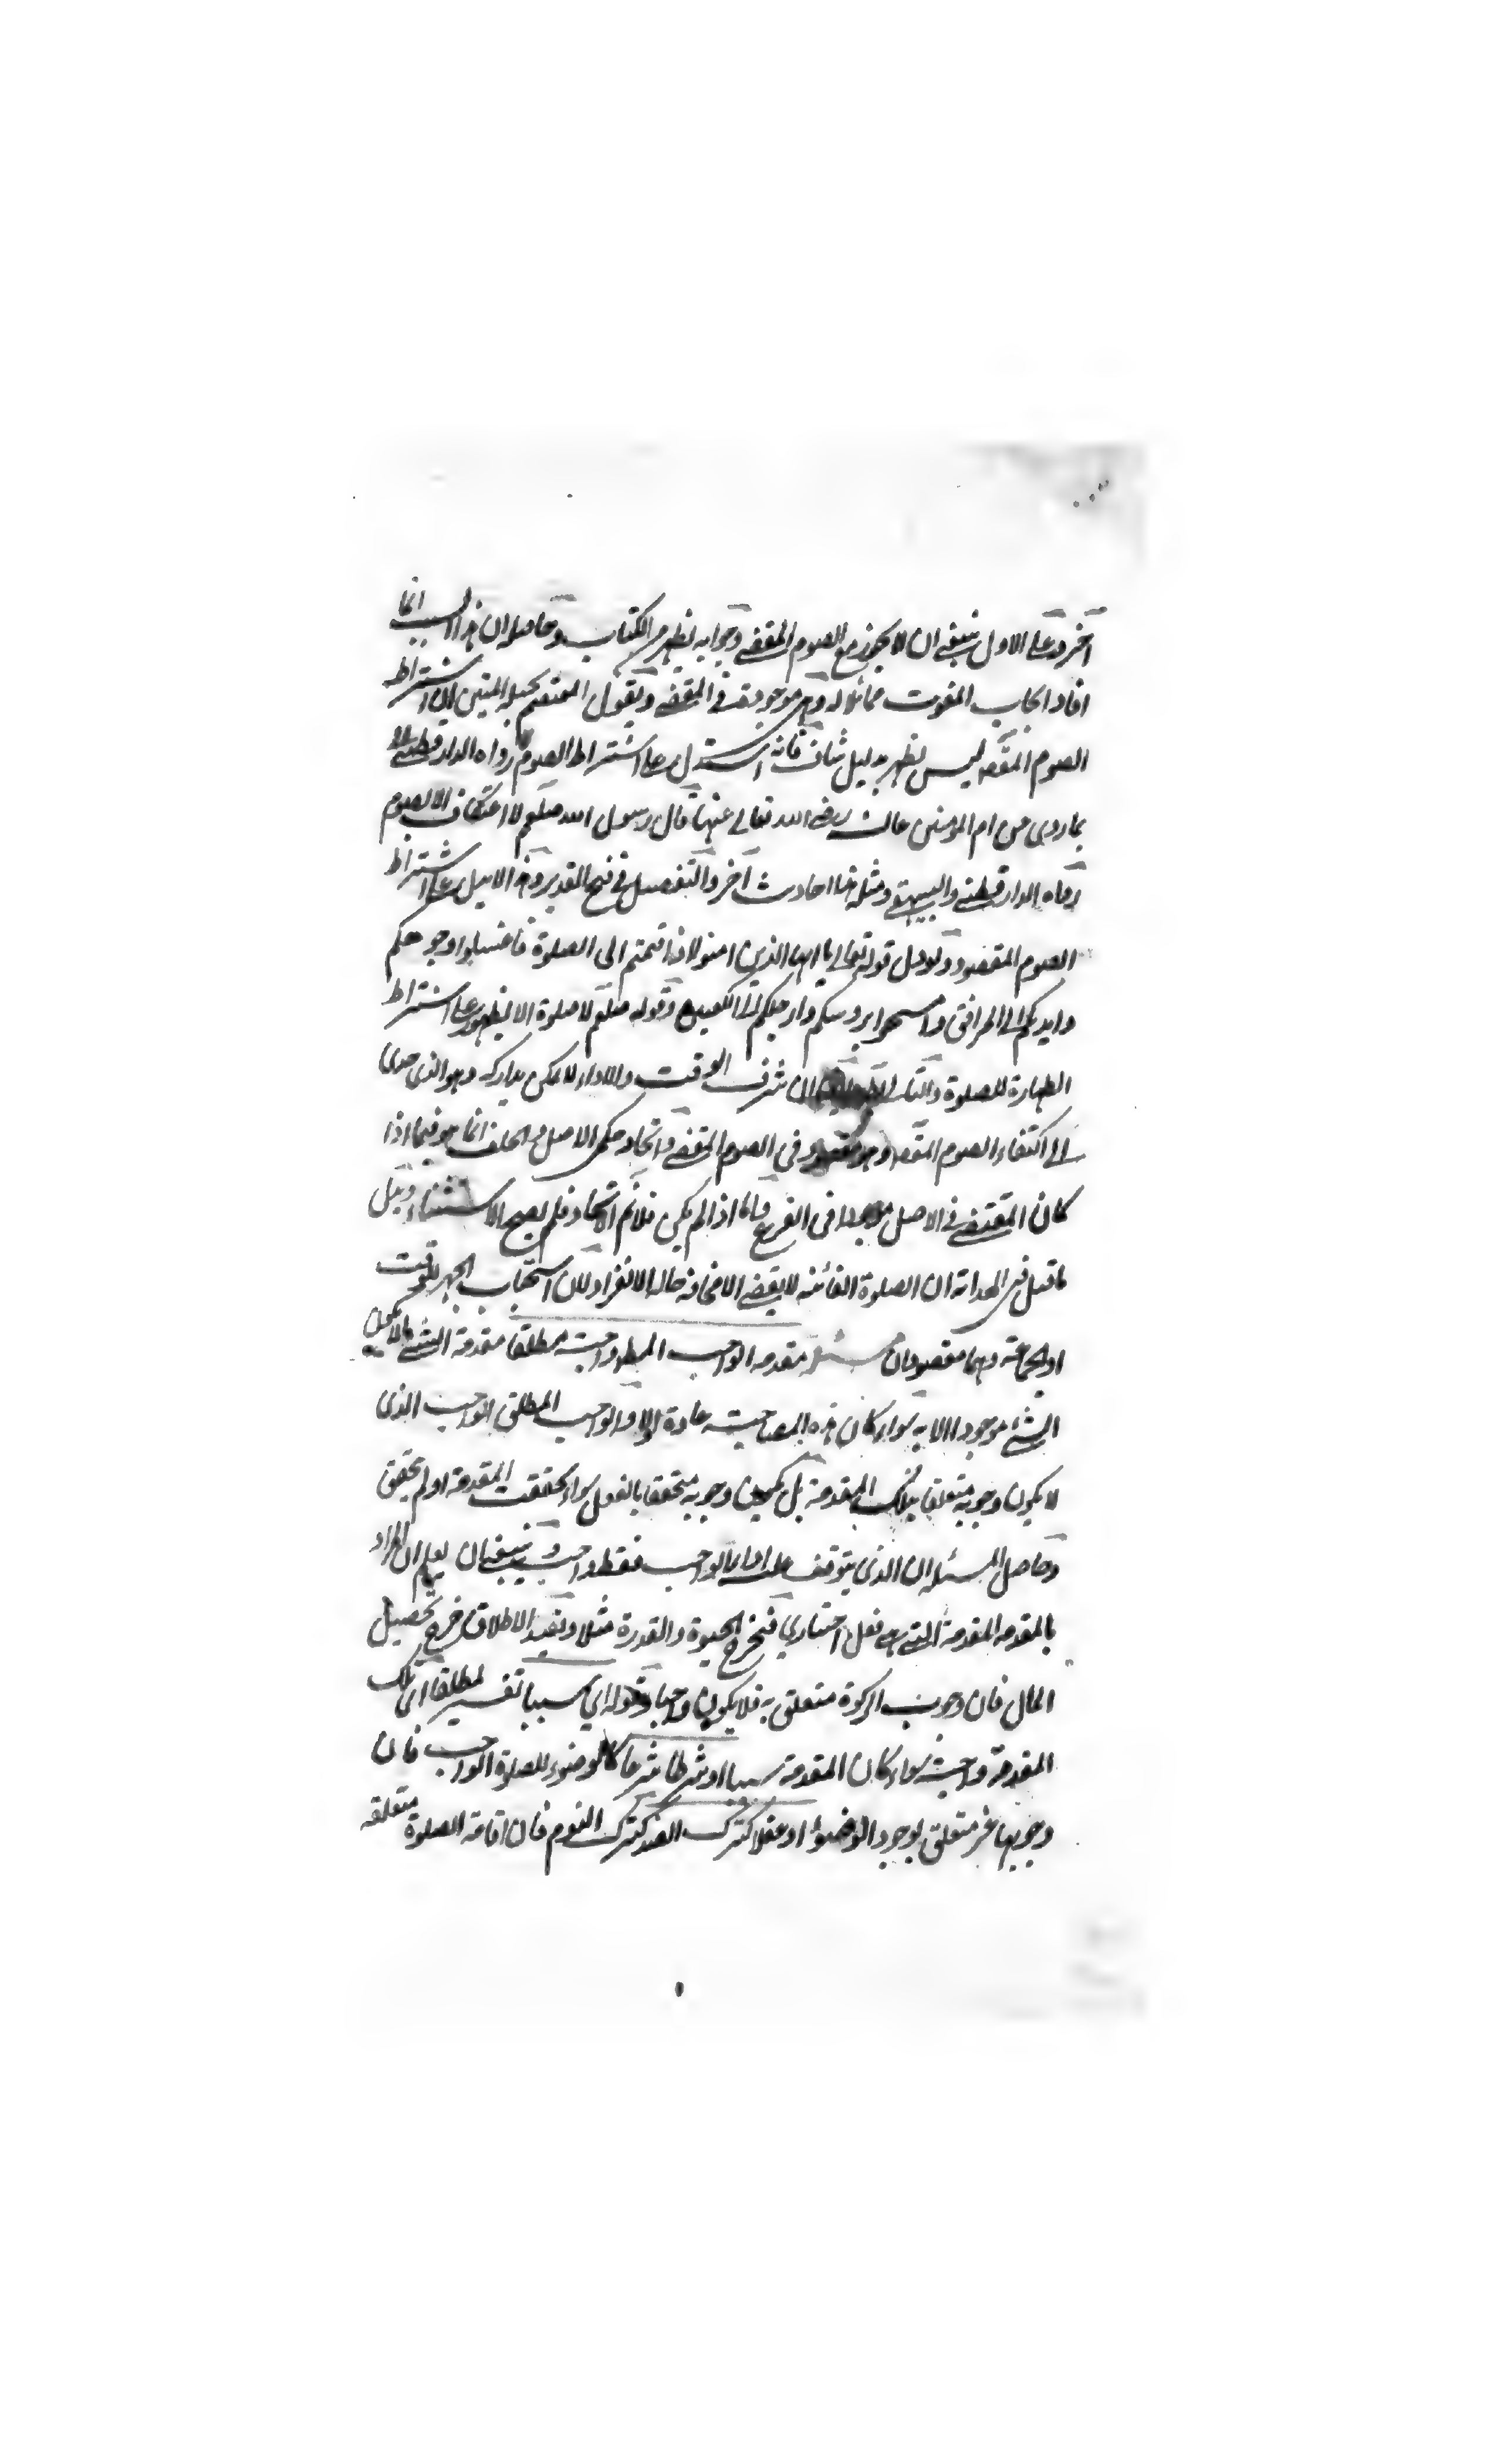 آخر وعلى الاول ينبغى ان لا يجوز مع الصوم المقضے وجوابه يظهر من الكتاب وحاصله ان هذا السبب انما
افاد ايجاب المفوت مماثلا له وهى موجودة فى المقضے ويقول المعتصم بحبله المتين ان اشتراط
الصوم المقصود ليس يظهر بدليل شاف فانه استدل على اشتراط الصوم رواه الدارقطنے
بما روى عن ام المؤمنين عائشة رضے الله تعالے عنها قال رسول الله صلعم لا اعتكاف الا بصوم
رواه الدارقطنے والبيهقے ومثله هنا احاديث آخر والتفصيل فى فتح القدير وهذا لا يدل على اشتراط
الصوم المقصود ولو دل قوله تعالے يا ايها الذين امنوا اذا قمتم الى الصلوة فاغسلوا وجوهكم
وايديكم الے المرافق وامسحوا برؤسكم وارجلكم الے الكعبين وقوله صلعم لا صلوة الا بطهور على اشتراط
الطهارة للصلوة والثانى ان شرف الوقت والاداء لا يمكن تداركه وهو الذى هدى
الے اكتفاء الصوم المقصود وهو مفقود فى الصوم المقضے واتحاد حكمى الاصل والخلف انما هو فيما اذا
كان المقتضے فى الاصل موجودا فى الفرع واما اذا لم يكن فلا نم الاتحاد فلم يصح الاستثناء وقيل
ما قيل فى الهداية ان الصلوة الفائتة لا يقضے الا مخافتة حالة الانفراد لان استحباب الجهر للوقت
او الجماعة وهما مقصودان مسئلة مقدمة الواجب المط واجبة مطلقا مقدمة الشئے ما لا يكون
الشئے موجودا الا به سواء كان هذه المصاحبة عادة اولا والواجب المطلق الواجب الذى
لا يكون وجوبه متعلقا بتلك المقدمة بل يكون وجوبه متحققا بالفعل سواء تحققت المقدمة او لم تحقق
وحاصل المسئلة ان الذى يتوقف عليه اداء الواجب فقط واجب وينبغى ان يعلم ان المراد
بالمقدمة المقدمة التے هے فعل اختيارى فتخرج الحيوة والقدرة مثلا وبقيد الاطلاق خرج تحصيل
المال فان وجوب الزكوة متعلق به فلا يكون واجبا وقوله اى سببا تفسير لمطلقا اى تلك
المقدمة واجبة سواء كان المقدمة سببا او شرطا شرعا كالوضوء للصلوة الواجب فان
وجوبها غير متعلق بوجود الوضوء او عقلا كترك الضد كترك النوم فان اقامة الصلوة متعلقه